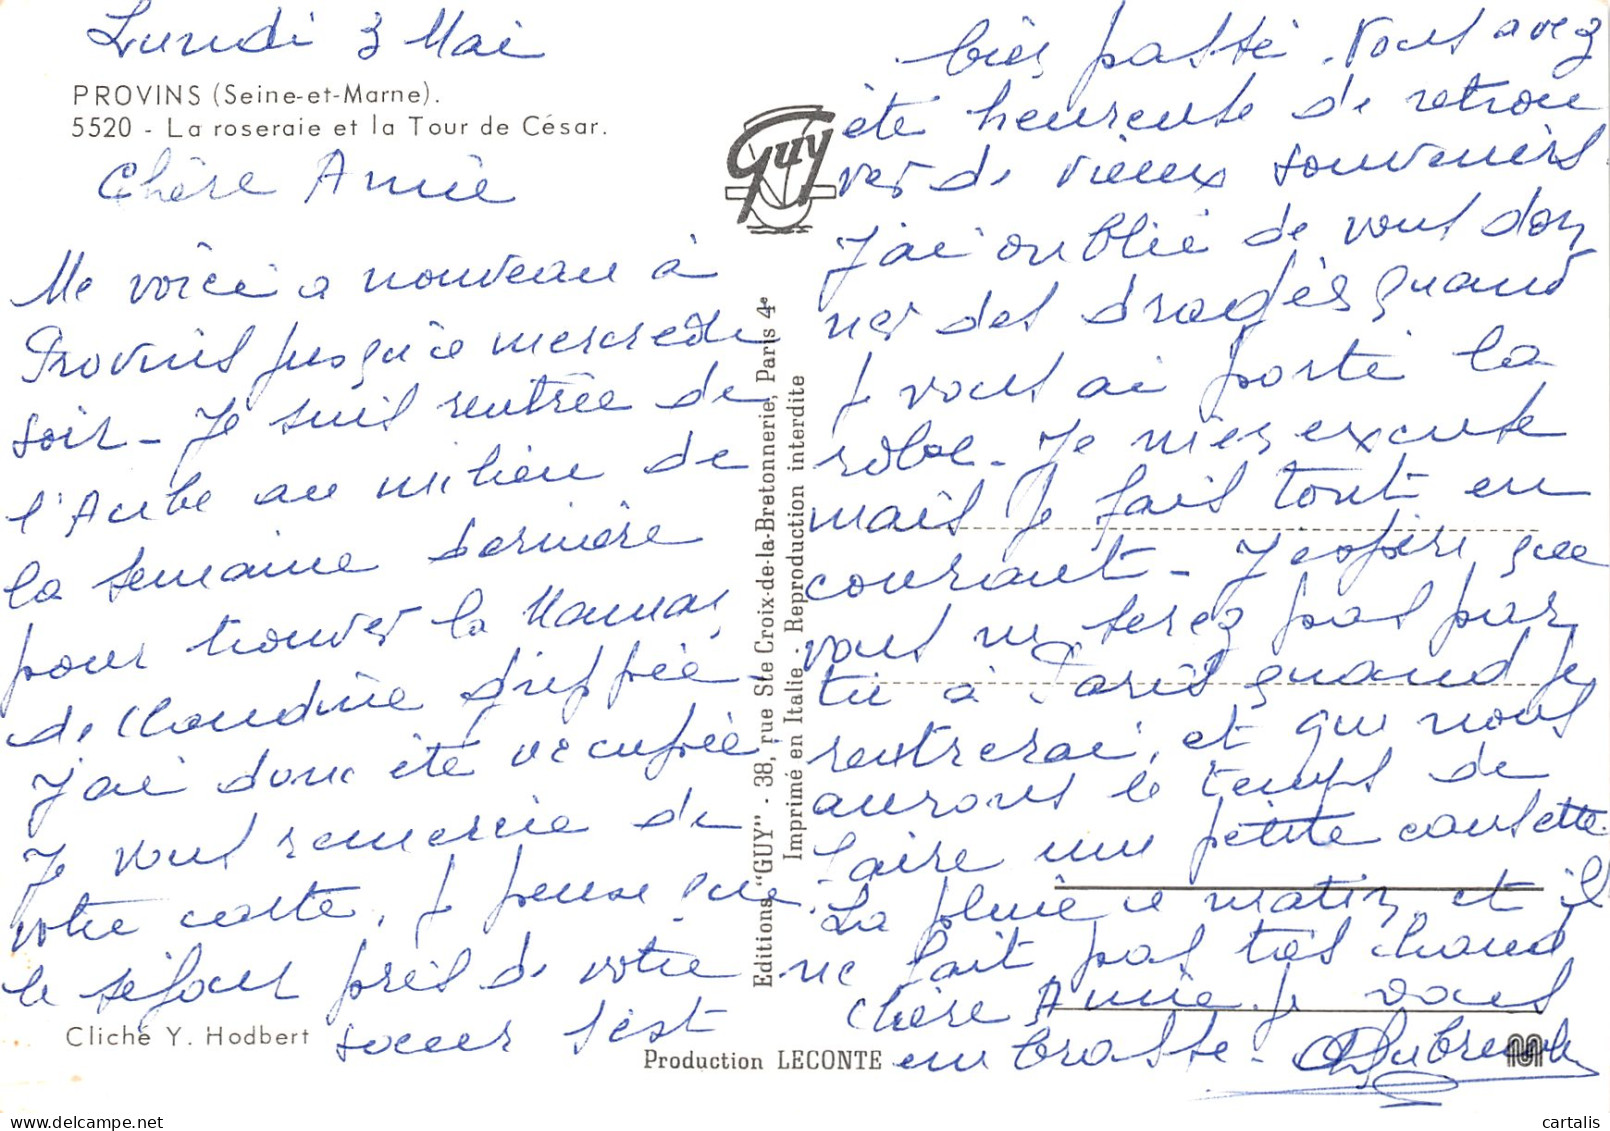 Lundi 3 Mai
PROVINS (Seine-et-Marne).
5520 - La roseraie et la Tour de César.
Chère Amie
Me voici a nouveau à
Provins jusqu'à mercredi
soir - Je suis rentrée de
l'Aube au milieu de
la semaine dernière
pour trouver la Maman
de Claudine grippée
J'ai donc été occupée
Je vous remercie de
votre carte, je pense que
le séjour près de votre
soeur s'est
Cliché Y. Hodbert
Editions "GUY" - 38, rue Ste Croix-de-la-Bretonnerie, Paris 4e
Imprimé en Italie - Reproduction interdite
Guy
Production LECONTE
bien passé. Vous avez
été heureuse de retrou
ver de vieux souvenirs
J'ai oublié de vous don
ner des dragées quand
je vous ai porté la
robe - Je m'en excuse
mais je fais tout en
courant - J'espère que
vous ne serez pas par
tie à Paris quand je
rentrerai, et que nous
aurons le temps de
faire une petite causette
La pluie ce matin et il
ne fait pas très chaud
Chère Amie je vous
embrasse -
cartalis